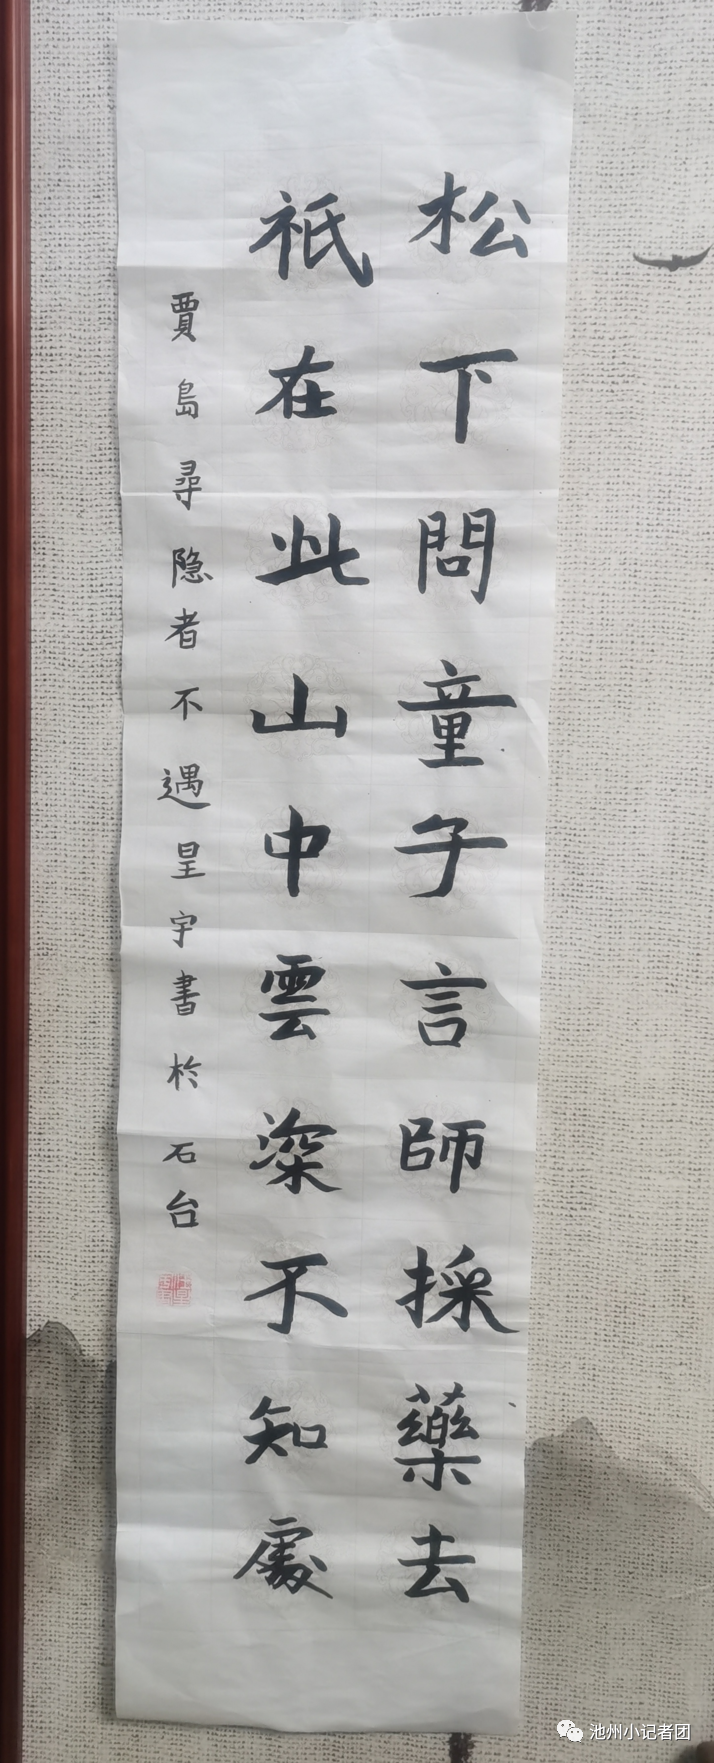 松下問童子言師採藥去
祇在此山中雲深不知處
賈島尋隐者不遇呈宇書於石台
池州小记者团